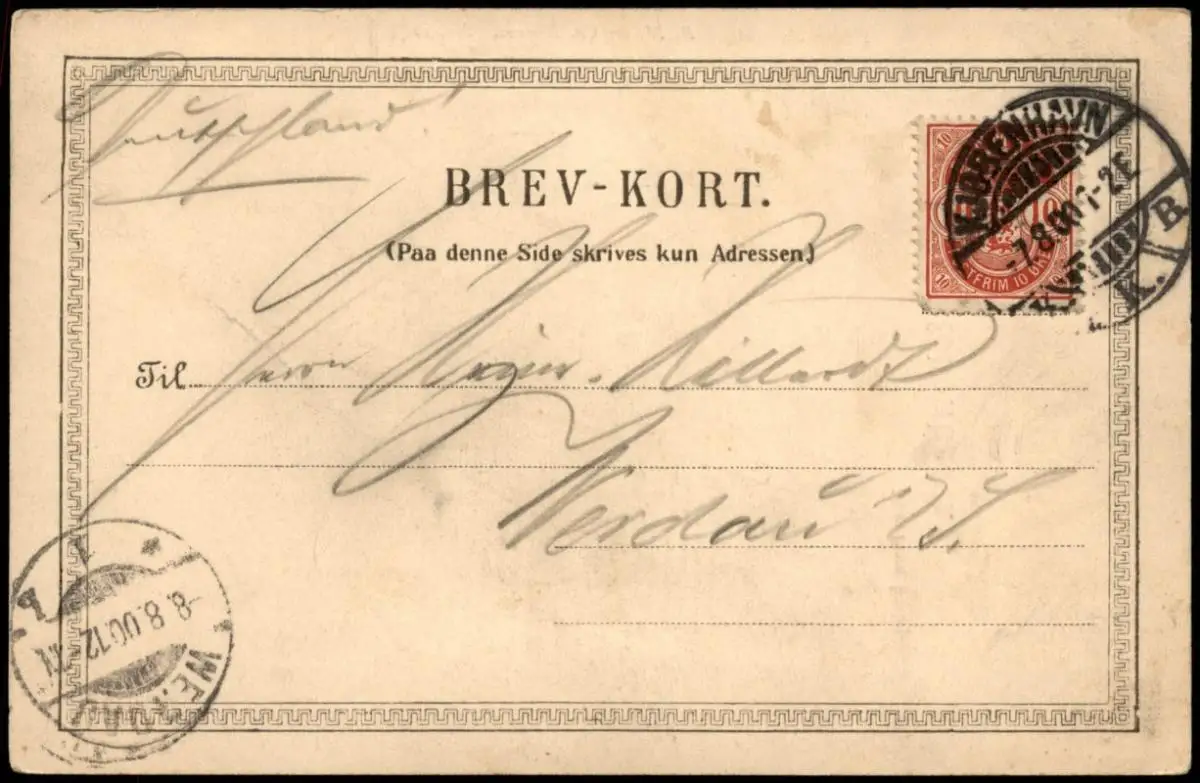 Deutschland!
BREV-KORT.
(Paa denne Side skrives kun Adressen.)
KJØBENHAVN
-7.8.00
K. B.
10
10
10
10
10
FRIM 10
Til Herrn
Werdau i/S.
WERDAU
-8.8.00.12